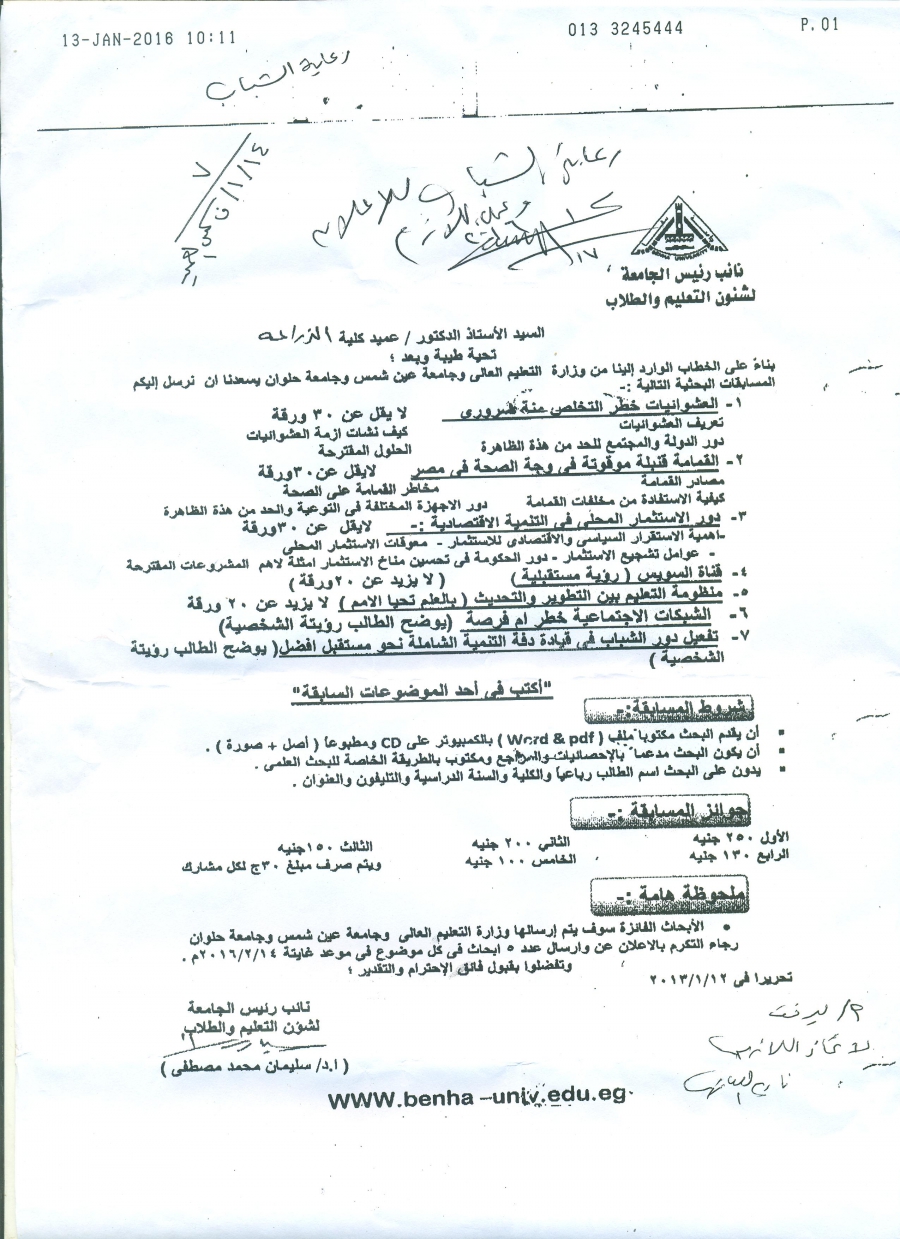 13-JAN-2016 10:11 013 3245444 P.01
رعاية الشباب
رعاية الشباب للإعلان
وعمل اللازم
١/١٤
١٧
نائب رئيس الجامعة
لشئون التعليم والطلاب
السيد الأستاذ الدكتور / عميد كلية الزراعه
تحية طيبة وبعد ؛
بناءً على الخطاب الوارد إلينا من وزارة التعليم العالى وجامعة عين شمس وجامعة حلوان يسعدنا ان نرسل إليكم
المسابقات البحثية التالية :-
١- العشوانيات خطر التخلص منة ضرورى لا يقل عن ٣٠ ورقة
تعريف العشوانيات كيف نشات ازمة العشوانيات
دور الدولة والمجتمع للحد من هذة الظاهرة الحلول المقترحة
٢- القمامة قنبلة موقوتة فى وجة الصحة فى مصر لايقل عن ٣٠ورقة
مصادر القمامة مخاطر القمامة على الصحة
كيفية الاستفادة من مخلفات القمامة دور الاجهزة المختلفة فى التوعية والحد من هذة الظاهرة
٣- دور الاستثمار المحلى فى التنمية الاقتصادية :- لايقل عن ٣٠ورقة
-اهمية الاستقرار السياسى والاقتصادى للاستثمار - معوقات الاستثمار المحلى
- عوامل تشجيع الاستثمار - دور الحكومة فى تحسين مناخ الاستثمار امثلة لاهم المشروعات المقترحة
٤- قناة السويس ( رؤية مستقبلية ) ( لا يزيد عن ٢٠ورقة )
٥- منظومة التعليم بين التطوير والتحديث ( بالعلم تحيا الامم ) لا يزيد عن ٢٠ ورقة
٦- الشبكات الاجتماعية خطر ام فرصة (يوضح الطالب رؤيتة الشخصية)
٧- تفعيل دور الشباب فى قيادة دفة التنمية الشاملة نحو مستقبل افضل( يوضح الطالب رؤيتة
الشخصية )
"أكتب فى أحد الموضوعات السابقة"
شروط المسابقة:-
▪ أن يقدم البحث مكتوبا ملف ( Word & pdf ) بالكمبيوتر على CD ومطبوعاً ( أصل + صورة ) .
▪ أن يكون البحث مدعماً بالإحصائيات والمراجع ومكتوب بالطريقة الخاصة للبحث العلمى .
▪ يدون على البحث اسم الطالب رباعياً والكلية والسنة الدراسية والتليفون والعنوان .
جوائز المسابقة :-
الأول ٢٥٠ جنيه الثاني ٢٠٠ جنيه الثالث ١٥٠جنيه
الرابع ١٣٠ جنيه الخامس ١٠٠ جنيه ويتم صرف مبلغ ٣٠ج لكل مشارك
ملحوظة هامة :-
• الأبحاث الفائزة سوف يتم إرسالها وزارة التعليم العالى وجامعة عين شمس وجامعة حلوان
رجاء التكرم بالاعلان عن وارسال عدد ٥ ابحاث فى كل موضوع فى موعد غايتة ٢٠١٦/٢/١٤م .
وتفضلوا بقبول فائق الإحترام والتقدير ؛
تحريرا فى ٢٠١٣/١/١٢
نائب رئيس الجامعة
لشؤن التعليم والطلاب
( ا.د/ سليمان محمد مصطفى )
م/ ميرفت
لاتخاذ اللازم
WWW.benha –univ.edu.eg